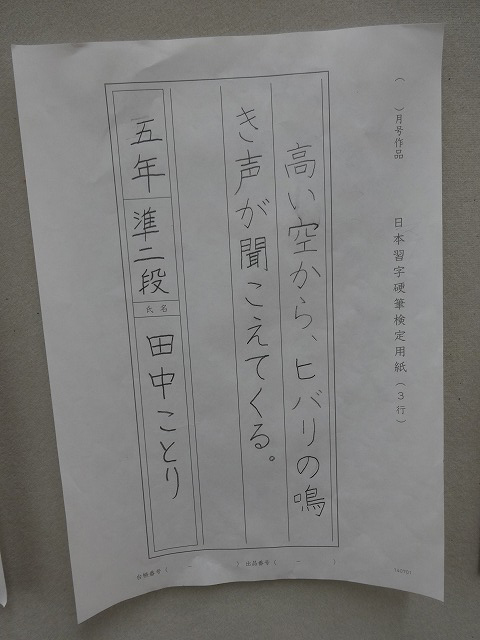 ( )月号作品 日本習字硬筆検定用紙(3行)
高い空から、ヒバリの鳴
き声が聞こえてくる。
五年 準二段 氏名 田中ことり
( − ) 出品番号( − )